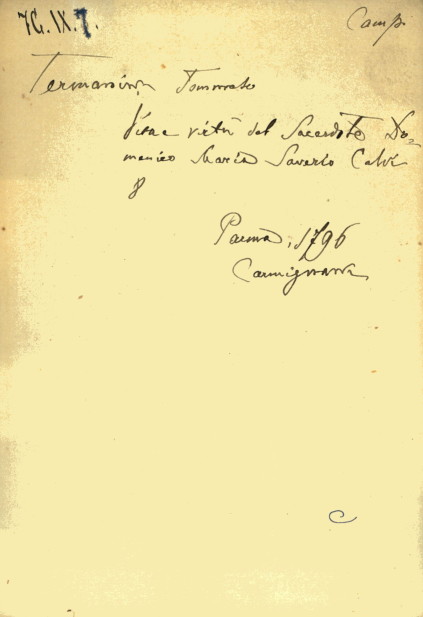 7G. IX. 7.
Camp.
Termanini Tommaso
Vita e virtù del Sacerdote Do=
menico Maria Saverio Calvi
8
Parma, 1796
Carmignani
C